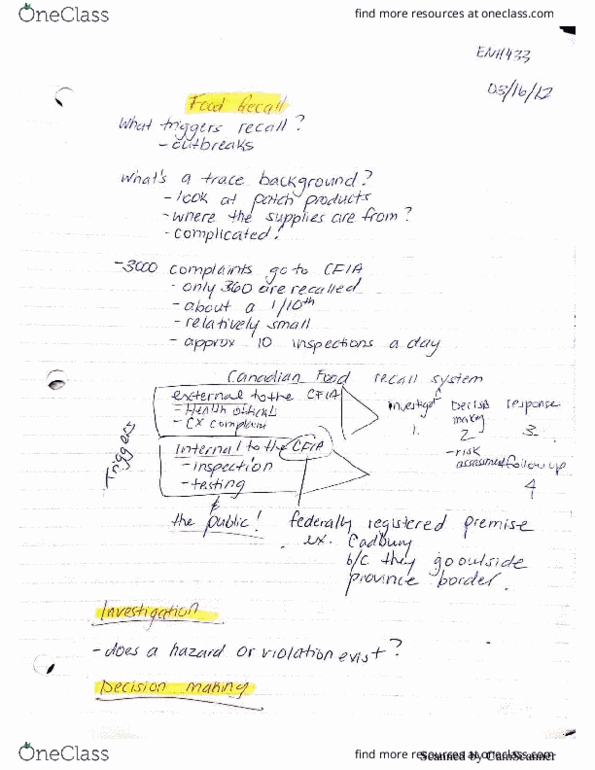 OneClass
find more resources at oneclass.com
ENH433
03/16/12
Food Recall
What triggers recall?
- outbreaks
What's a trace background?
- look at patch products
- where the supplies are from?
- complicated!
- 3000 complaints go to CFIA
- only 360 are recalled
- about a 1/10th
- relatively small
- approx 10 inspections a day
Canadian Food recall system
Triggers
external to the CFIA
- Health
- CX complaint
internal to the CFIA
- inspection
- testing
& the public!
1.
making
2
- risk assessment
response
3.
follow up
4
federally registered premise
ex. Cadbury
b/c they go outside
province border.
Investigation
- does a hazard or violation exist?
Decision making
OneClass
find more resources at oneclass.com
Scanned by CamScanner